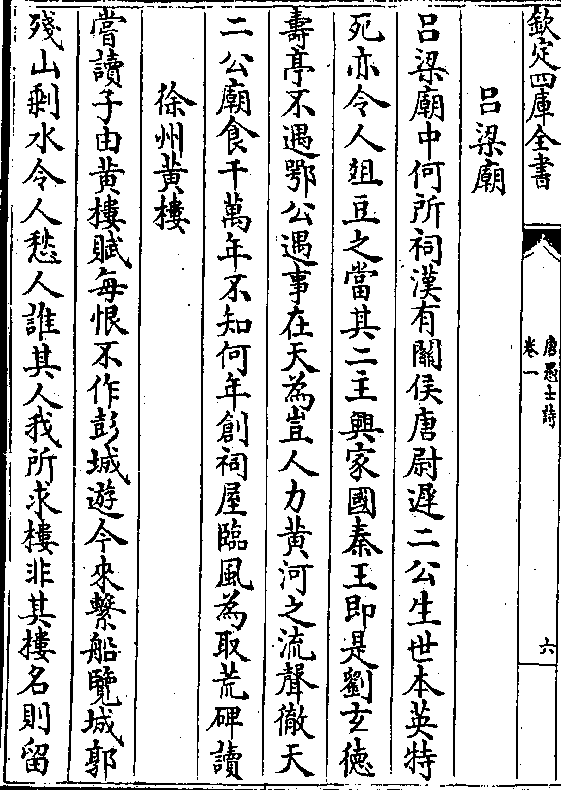 欽定四庫全書
唐愚士詩
卷一
六
呂梁廟
呂梁廟中何所祠漢有關侯唐尉遲二公生世本英特
死亦令人俎豆之當其二主興家國秦王即是劉玄徳
壽亭不遇鄂公遇事在天為豈人力黄河之流聲徹天
二公廟食千萬年不知何年創祠屋臨風為取荒碑讀
徐州黄樓
嘗讀子由黄樓賦每恨不作彭城遊今來繫船覽城郭
殘山剰水令人愁人誰其人我所求樓非其樓名則留